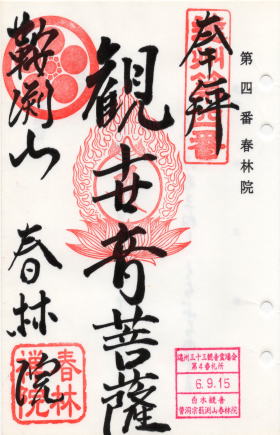 第四番 春林院
奉拝
観世音菩薩
鞍渕山 春林院
春林
禅院
遠州三十三観音霊場会
第4番札所
6.9.15
白水観音
曹洞宗鞍渕山春林院